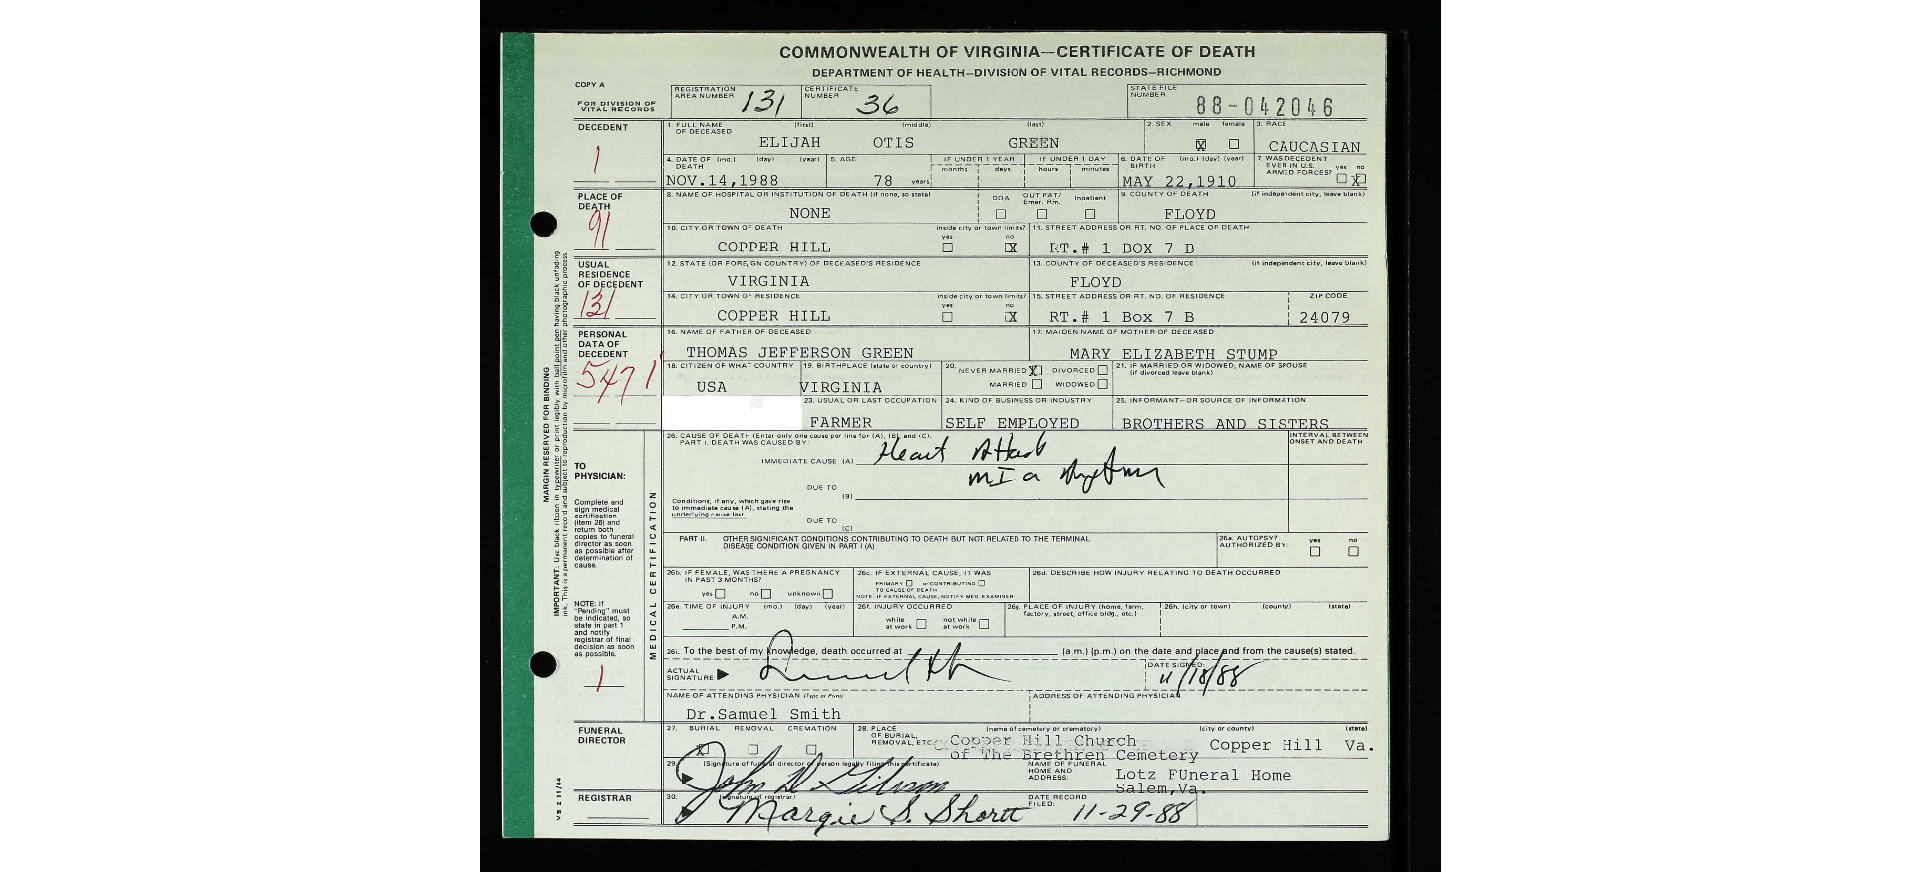 COMMONWEALTH OF VIRGINIA—CERTIFICATE OF DEATH
DEPARTMENT OF HEALTH—DIVISION OF VITAL RECORDS—RICHMOND
COPY A
FOR DIVISION OF VITAL RECORDS
REGISTRATION AREA NUMBER 131
CERTIFICATE NUMBER 36
STATE FILE NUMBER 88-042046
DECEDENT
1
1. FULL NAME OF DECEASED (first) (middle) (last)
ELIJAH OTIS GREEN
2. SEX male female
X
3. RACE
CAUCASIAN
4. DATE OF DEATH (mo.) (day) (year)
NOV.14,1988
5. AGE
78 years
IF UNDER 1 YEAR months days
IF UNDER 1 DAY hours minutes
6. DATE OF BIRTH (mo.) (day) (year)
MAY 22,1910
7. WAS DECEDENT EVER IN U.S. ARMED FORCES? yes no
X
PLACE OF DEATH
91
8. NAME OF HOSPITAL OR INSTITUTION OF DEATH (if none, so state)
NONE
DOA OUT PAT/ Emer. Rm. Inpatient
9. COUNTY OF DEATH (if independent city, leave blank)
FLOYD
10. CITY OR TOWN OF DEATH inside city or town limits? yes no
COPPER HILL X
11. STREET ADDRESS OR RT. NO. OF PLACE OF DEATH
RT.# 1 BOX 7 B
USUAL RESIDENCE OF DECEDENT
131
12. STATE (OR FOREIGN COUNTRY) OF DECEASED'S RESIDENCE
VIRGINIA
13. COUNTY OF DECEASED'S RESIDENCE (if independent city, leave blank)
FLOYD
14. CITY OR TOWN OF RESIDENCE inside city or town limits? yes no
COPPER HILL X
15. STREET ADDRESS OR RT. NO. OF RESIDENCE ZIP CODE
RT.# 1 Box 7 B 24079
PERSONAL DATA OF DECEDENT
5471
16. NAME OF FATHER OF DECEASED
THOMAS JEFFERSON GREEN
17. MAIDEN NAME OF MOTHER OF DECEASED
MARY ELIZABETH STUMP
18. CITIZEN OF WHAT COUNTRY
USA
19. BIRTHPLACE (state or country)
VIRGINIA
20. NEVER MARRIED X DIVORCED
MARRIED WIDOWED
21. IF MARRIED OR WIDOWED, NAME OF SPOUSE (if divorced leave blank)
23. USUAL OR LAST OCCUPATION
FARMER
24. KIND OF BUSINESS OR INDUSTRY
SELF EMPLOYED
25. INFORMANT—OR SOURCE OF INFORMATION
BROTHERS AND SISTERS
MARGIN RESERVED FOR BINDING
IMPORTANT: Use black ribbon in typewriter or print legibly with ball point pen having black unfading
ink. This is a permanent record and subject to reproduction by microfilm and other photographic process.
VS 2 11/74
TO PHYSICIAN:
Complete and sign medical certification (item 26) and return both copies to funeral director as soon as possible after determination of cause.
NOTE: If "Pending" must be indicated, so state in part 1 and notify registrar of final decision as soon as possible.
1
MEDICAL CERTIFICATION
26. CAUSE OF DEATH (Enter only one cause per line for (A), (B), and (C).
PART I. DEATH WAS CAUSED BY:
INTERVAL BETWEEN ONSET AND DEATH
IMMEDIATE CAUSE (A) Heart Attack
MI
DUE TO (B)
Conditions, if any, which gave rise to immediate cause (A), stating the underlying cause last
DUE TO (C)
PART II. OTHER SIGNIFICANT CONDITIONS CONTRIBUTING TO DEATH BUT NOT RELATED TO THE TERMINAL DISEASE CONDITION GIVEN IN PART I (A)
26a. AUTOPSY? AUTHORIZED BY: yes no
26b. IF FEMALE, WAS THERE A PREGNANCY IN PAST 3 MONTHS?
yes no unknown
26c. IF EXTERNAL CAUSE, IT WAS
PRIMARY or CONTRIBUTING
TO CAUSE OF DEATH
NOTE: IF EXTERNAL CAUSE, NOTIFY MED. EXAMINER
26d. DESCRIBE HOW INJURY RELATING TO DEATH OCCURRED
26e. TIME OF INJURY (mo.) (day) (year)
A.M.
P.M.
26f. INJURY OCCURRED
while at work not while at work
26g. PLACE OF INJURY (home, farm, factory, street, office bldg., etc.)
26h. (city or town) (county) (state)
26i. To the best of my knowledge, death occurred at (a.m.) (p.m.) on the date and place and from the cause(s) stated.
ACTUAL SIGNATURE
DATE SIGNED:
11/18/88
NAME OF ATTENDING PHYSICIAN (Type or Print)
Dr.Samuel Smith
ADDRESS OF ATTENDING PHYSICIAN
FUNERAL DIRECTOR
27. BURIAL REMOVAL CREMATION
X
28. PLACE OF BURIAL, REMOVAL, ETC. (name of cemetery or crematory) (city or county) (state)
Copper Hill Church of The Brethren Cemetery Copper Hill Va.
29. (Signature of funeral director or person legally filing this certificate)
John D Gibson
NAME OF FUNERAL HOME AND ADDRESS:
Lotz FUneral Home
Salem,Va.
REGISTRAR
30. (signature of registrar)
Margie S. Shortt
DATE RECORD FILED: 11-29-88